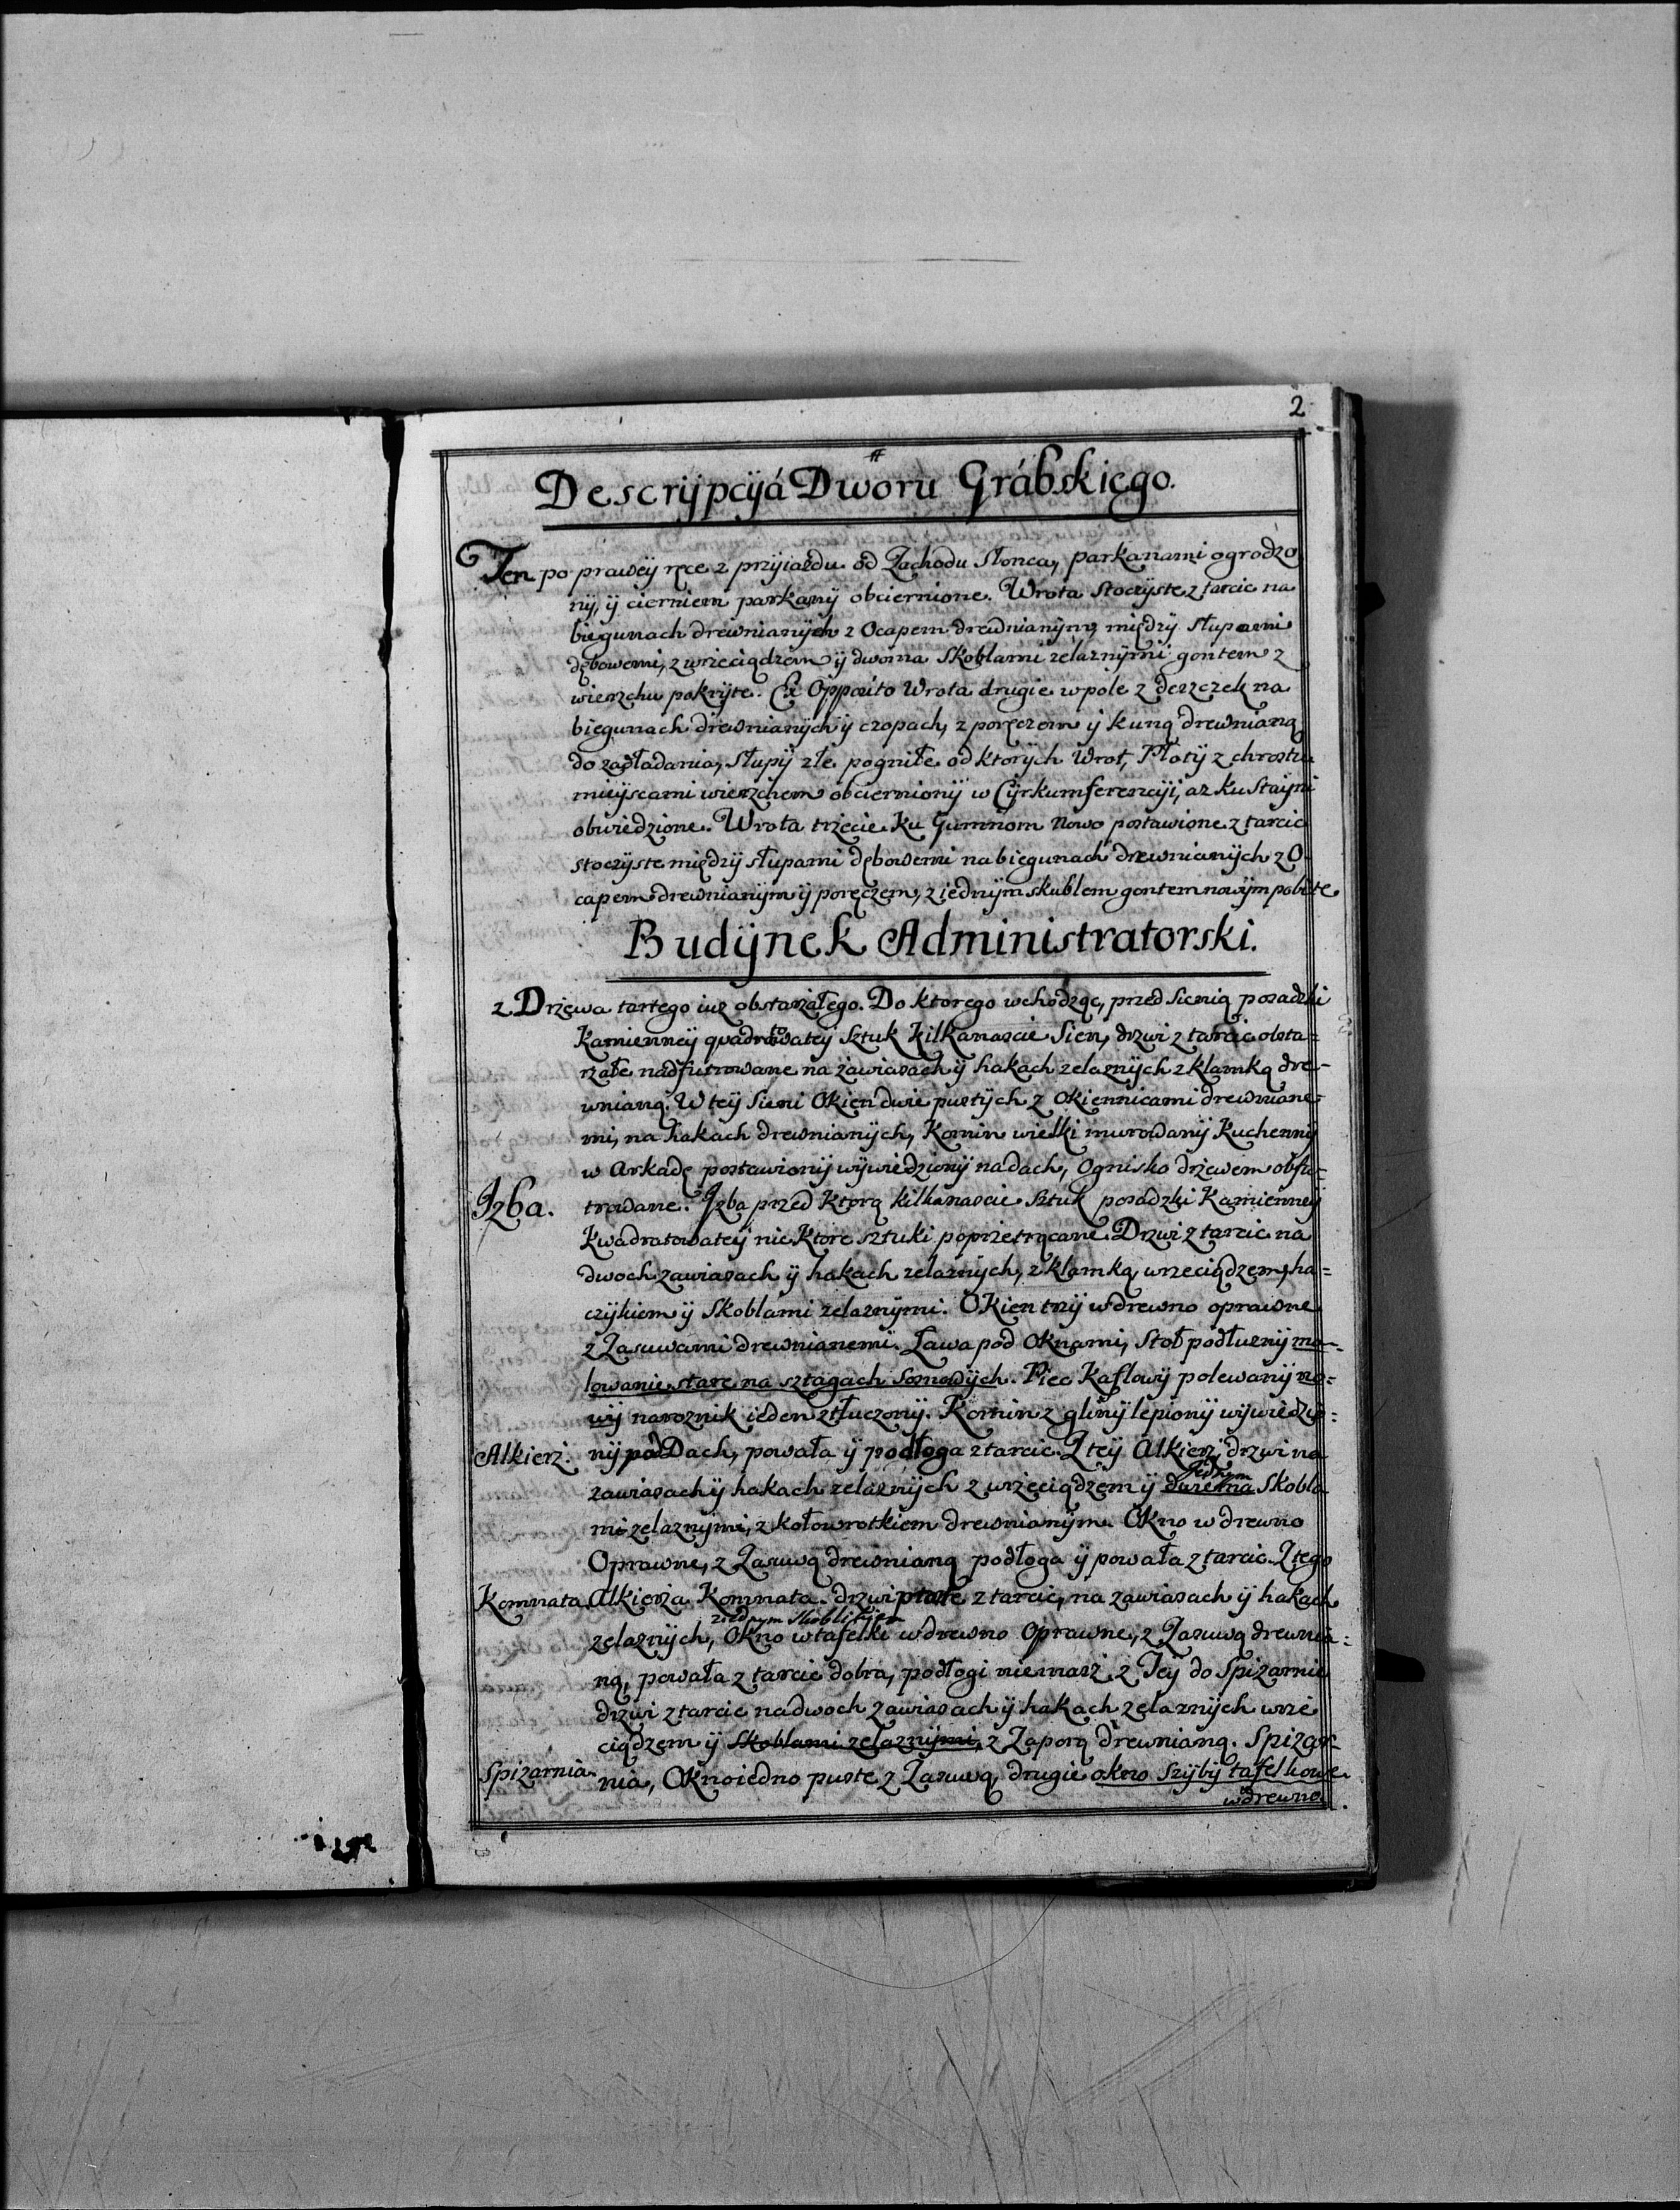 2
Descrijpcijá Dworu Grábskiego.
Ten po prawey ręce z przyiazdu od Zachodu Słonca, parkanami ogrodzo
nÿ, ÿ cierniem parkanÿ obciernione. Wrota Stoczÿste z tarcic na
biegunach drewnianÿch z Ocapem drewnianÿm, międzÿ słupami
dębowemi, z wrzeciądzem ÿ dwoma Skoblami zelaznÿmi gontem z
wierzchu pokrÿte. Ex Opposito Wrota drugie w pole z deszczek na
biegunach drewnianÿch ÿ czopach, z poręczem ÿ kuną drewnianą
do zakładania, Słupÿ złe pogniłe od ktorÿch Wrot, Płotÿ z chrostu
mieÿscami wierzchem obciernionÿ w Cÿrkumferencÿi, az ku Staÿni
obwiedzione. Wrota trzecie Ku Gumnom Nowo postawione z tarcic
stoczÿste międzÿ słupami dębowemi na biegunach drewnianÿch z O
capem drewnianÿm ÿ poręczem, z iednÿm skublem gontem nowÿm pobite
Budÿnek Administratorski.
z Drzewa tartego iuz obstarzałego. Do ktorego wchodząc, przed Sienią posadzki
Kamienneÿ quadratowateÿ Sztuk Kilkanascie Sien, drzwi z tarcic obsta=
rzałe nadfutrowane na zawiasach ÿ hakach zelaznÿch z klamką dre-
wnianą. W teÿ Sieni Okien dwie pustÿch z Okiennicami drewniane=
mi, na hakach drewnianÿch, Komin wielki murowanÿ Kuchennÿ
w Arkadę postawionÿ wÿwiedzionÿ na dach, Ognisko drzewem obfu=
Izba. trowane. Izba przed Ktorą kilkanascie Sztuk posadzki Kamienneÿ
Kwadratowateÿ nie Ktore sztuki poprzetrącane. Drzwi z tarcic na
dwoch zawiasach ÿ hakach zelaznÿch, z klamką, wrzeciądzem, ha=
czÿkiem ÿ Skoblami zelaznÿmi. Okien trzÿ w drewno oprawne
z Zasuwami drewnianemi. Ława pod Oknami, Stoł podłuznÿ ma-
lowanie stare na sztagach Sosnowÿch. Piec Kaflowÿ polewanÿ no=
wÿ naroznik ieden ztłuczonÿ. Komin z glinÿ lepionÿ wÿwiedzio=
Alkierz. nÿ pod Dach, powała ÿ podłoga z tarcic. Z teÿ Alkierz, drzwi na
zawiasach ÿ hakach zelaznÿch z wrzeciądzem ÿ dwiema Jednym Skobla
mi zelaznÿmi, z kołowrotkiem drewnianÿm. Okno w drewno
Oprawne, z Zasuwą drewnianą podłoga ÿ powała z tarcic. Z tego
Komnata Alkierza Komnata. drzwi proste z tarcic, na zawiasach ÿ hakach
z iednym Skoblikiem
zelaznÿch, Okno w tafelki w drewno Oprawne, z Zasuwą drewnia=
ną, powała z tarcic dobra, podłogi niemasz. z Teÿ do Spizarnie
drzwi z tarcic na dwoch zawiasach ÿ hakach zelaznÿch wrze
ciądzem ÿ Skoblami zelaznÿmi, z Zaporą drewnianą. Spizar-
Spizarnia. nia, Okno iedno puste z Zasuwą, drugie okno szÿbÿ tafelkowe
w drewno.